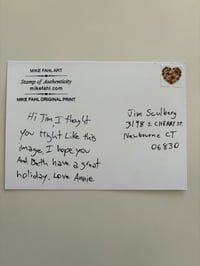 MIKE FAHL ART
Stamp of Authenticity
mikefahl.com
MIKE FAHL ORIGINAL PRINT
Hi Jim I thoght
you Might Like this
image. I hope you
And Beth have a great
holiday. Love Annie
Jim Sculberg
3198 S CHERRY ST.
Newbourne CT
06830